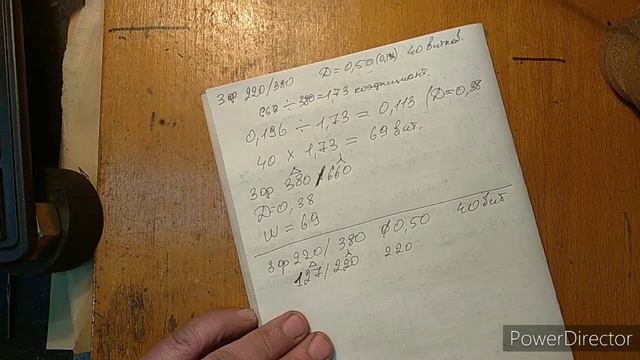 3ф 220/380 D=0,50 (0,196) 40 витков.
660 ÷ 380=1,73 коэфициент.
0,196 ÷ 1,73 = 0,113 (D=0,38
40 x 1,73 = 69 вит.
Δ λ
3ф 380/660
D=0,38
W = 69
3ф 220/380 ∅0,50 40 вит
Δ λ
127/220 220
PowerDirector